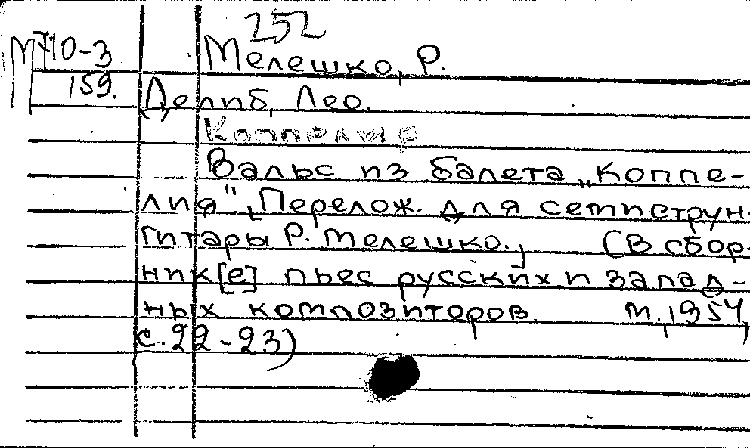 252
М710-3 Мелешко, Р.
159. Делиб, Лео.
Коппелия
Вальс из балета „Коппе-
лия". Перелож. для семиструн.
гитары Р. Мелешко., (В сбор-
ник[е] пьес русских и запад-
ных композиторов. М., 1954,
с. 22-23)